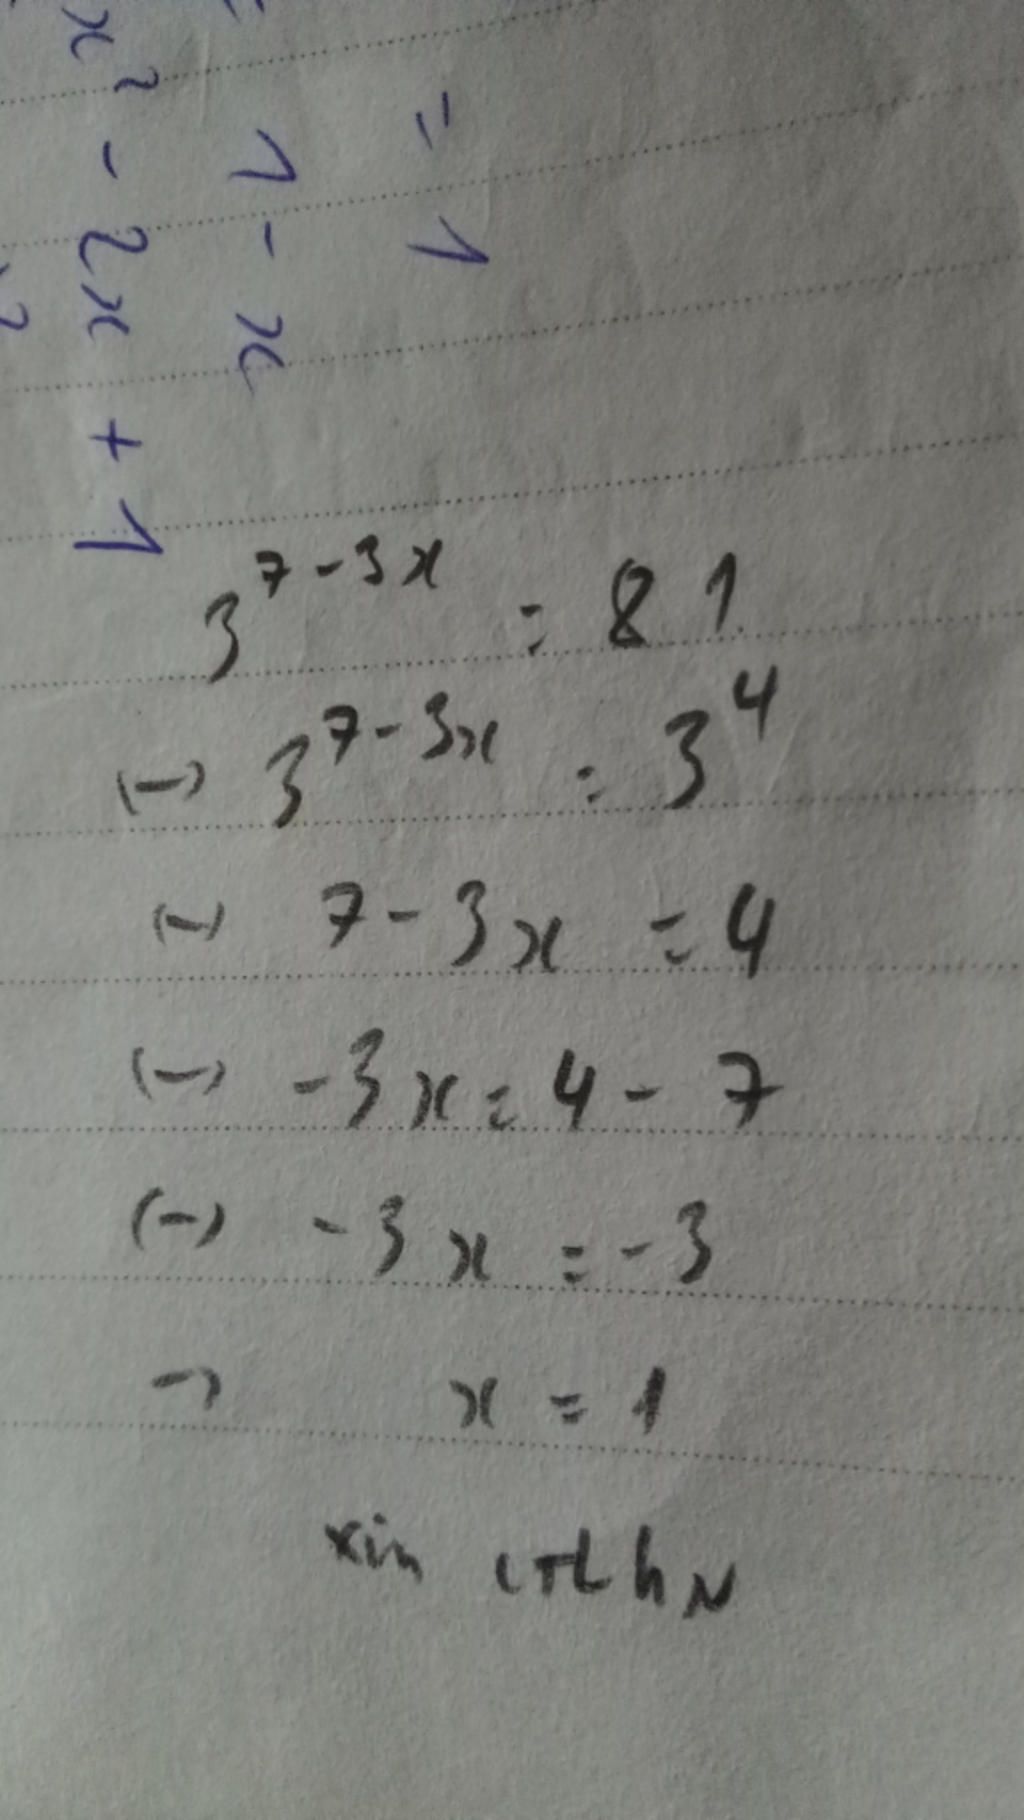 = 1
1 - x
x² - 2x + 1
3^{7-3x} = 81
(-) 3^{7-3x} = 3^4
(-) 7-3x = 4
(-) -3x = 4 - 7
(-) -3x = -3
-> x = 1
xin ctlhn